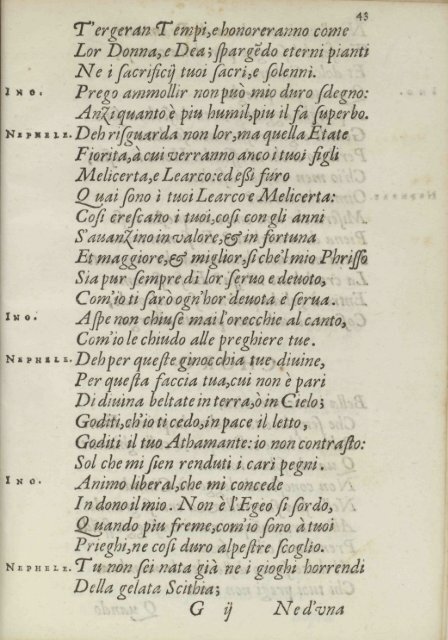 43
T'ergeran Tempi,e honoreranno come
Lor Donna,e Dea; ſpargẽdo eterni pianti
Ne i ſacrificij tuoi ſacri,e ſolenni.
INO. Prego ammollir non può mio duro ſdegno:
Anzi quanto è piu humil,piu il fa ſuperbo.
NEPHELE. Deh riſguarda non lor,ma quella Etate
Fiorita,à cui verranno anco i tuoi figli
Melicerta,e Learco:ed eßi furo
Quai ſono i tuoi Learco e Melicerta:
Coſi creſcano i tuoi,coſi con gli anni
S'auanzino in valore,& in fortuna
Et maggiore,& miglior,ſi che'l mio Phriſſo
Sia pur ſempre di lor ſeruo e deuoto,
Com'io ti ſarò ogn'hor deuota e ſerua.
INO. Aſpe non chiuſe mai l'orecchie al canto,
Com'io le chiudo alle preghiere tue.
NEPHELE. Deh per queſte ginocchia tue diuine,
Per queſta faccia tua,cui non è pari
Di diuina beltate in terra,ò in Cielo;
Goditi,ch'io ti cedo,in pace il letto,
Goditi il tuo Athamante:io non contraſto:
Sol che mi ſien renduti i cari pegni.
INO. Animo liberal,che mi concede
In dono il mio. Non è l'Egeo ſi ſordo,
Quando piu freme,com'io ſono à tuoi
Prieghi,ne coſi duro alpeſtre ſcoglio.
NEPHELE. Tu non ſei nata già ne i gioghi horrendi
Della gelata Scithia;
G ij Ne d'vna